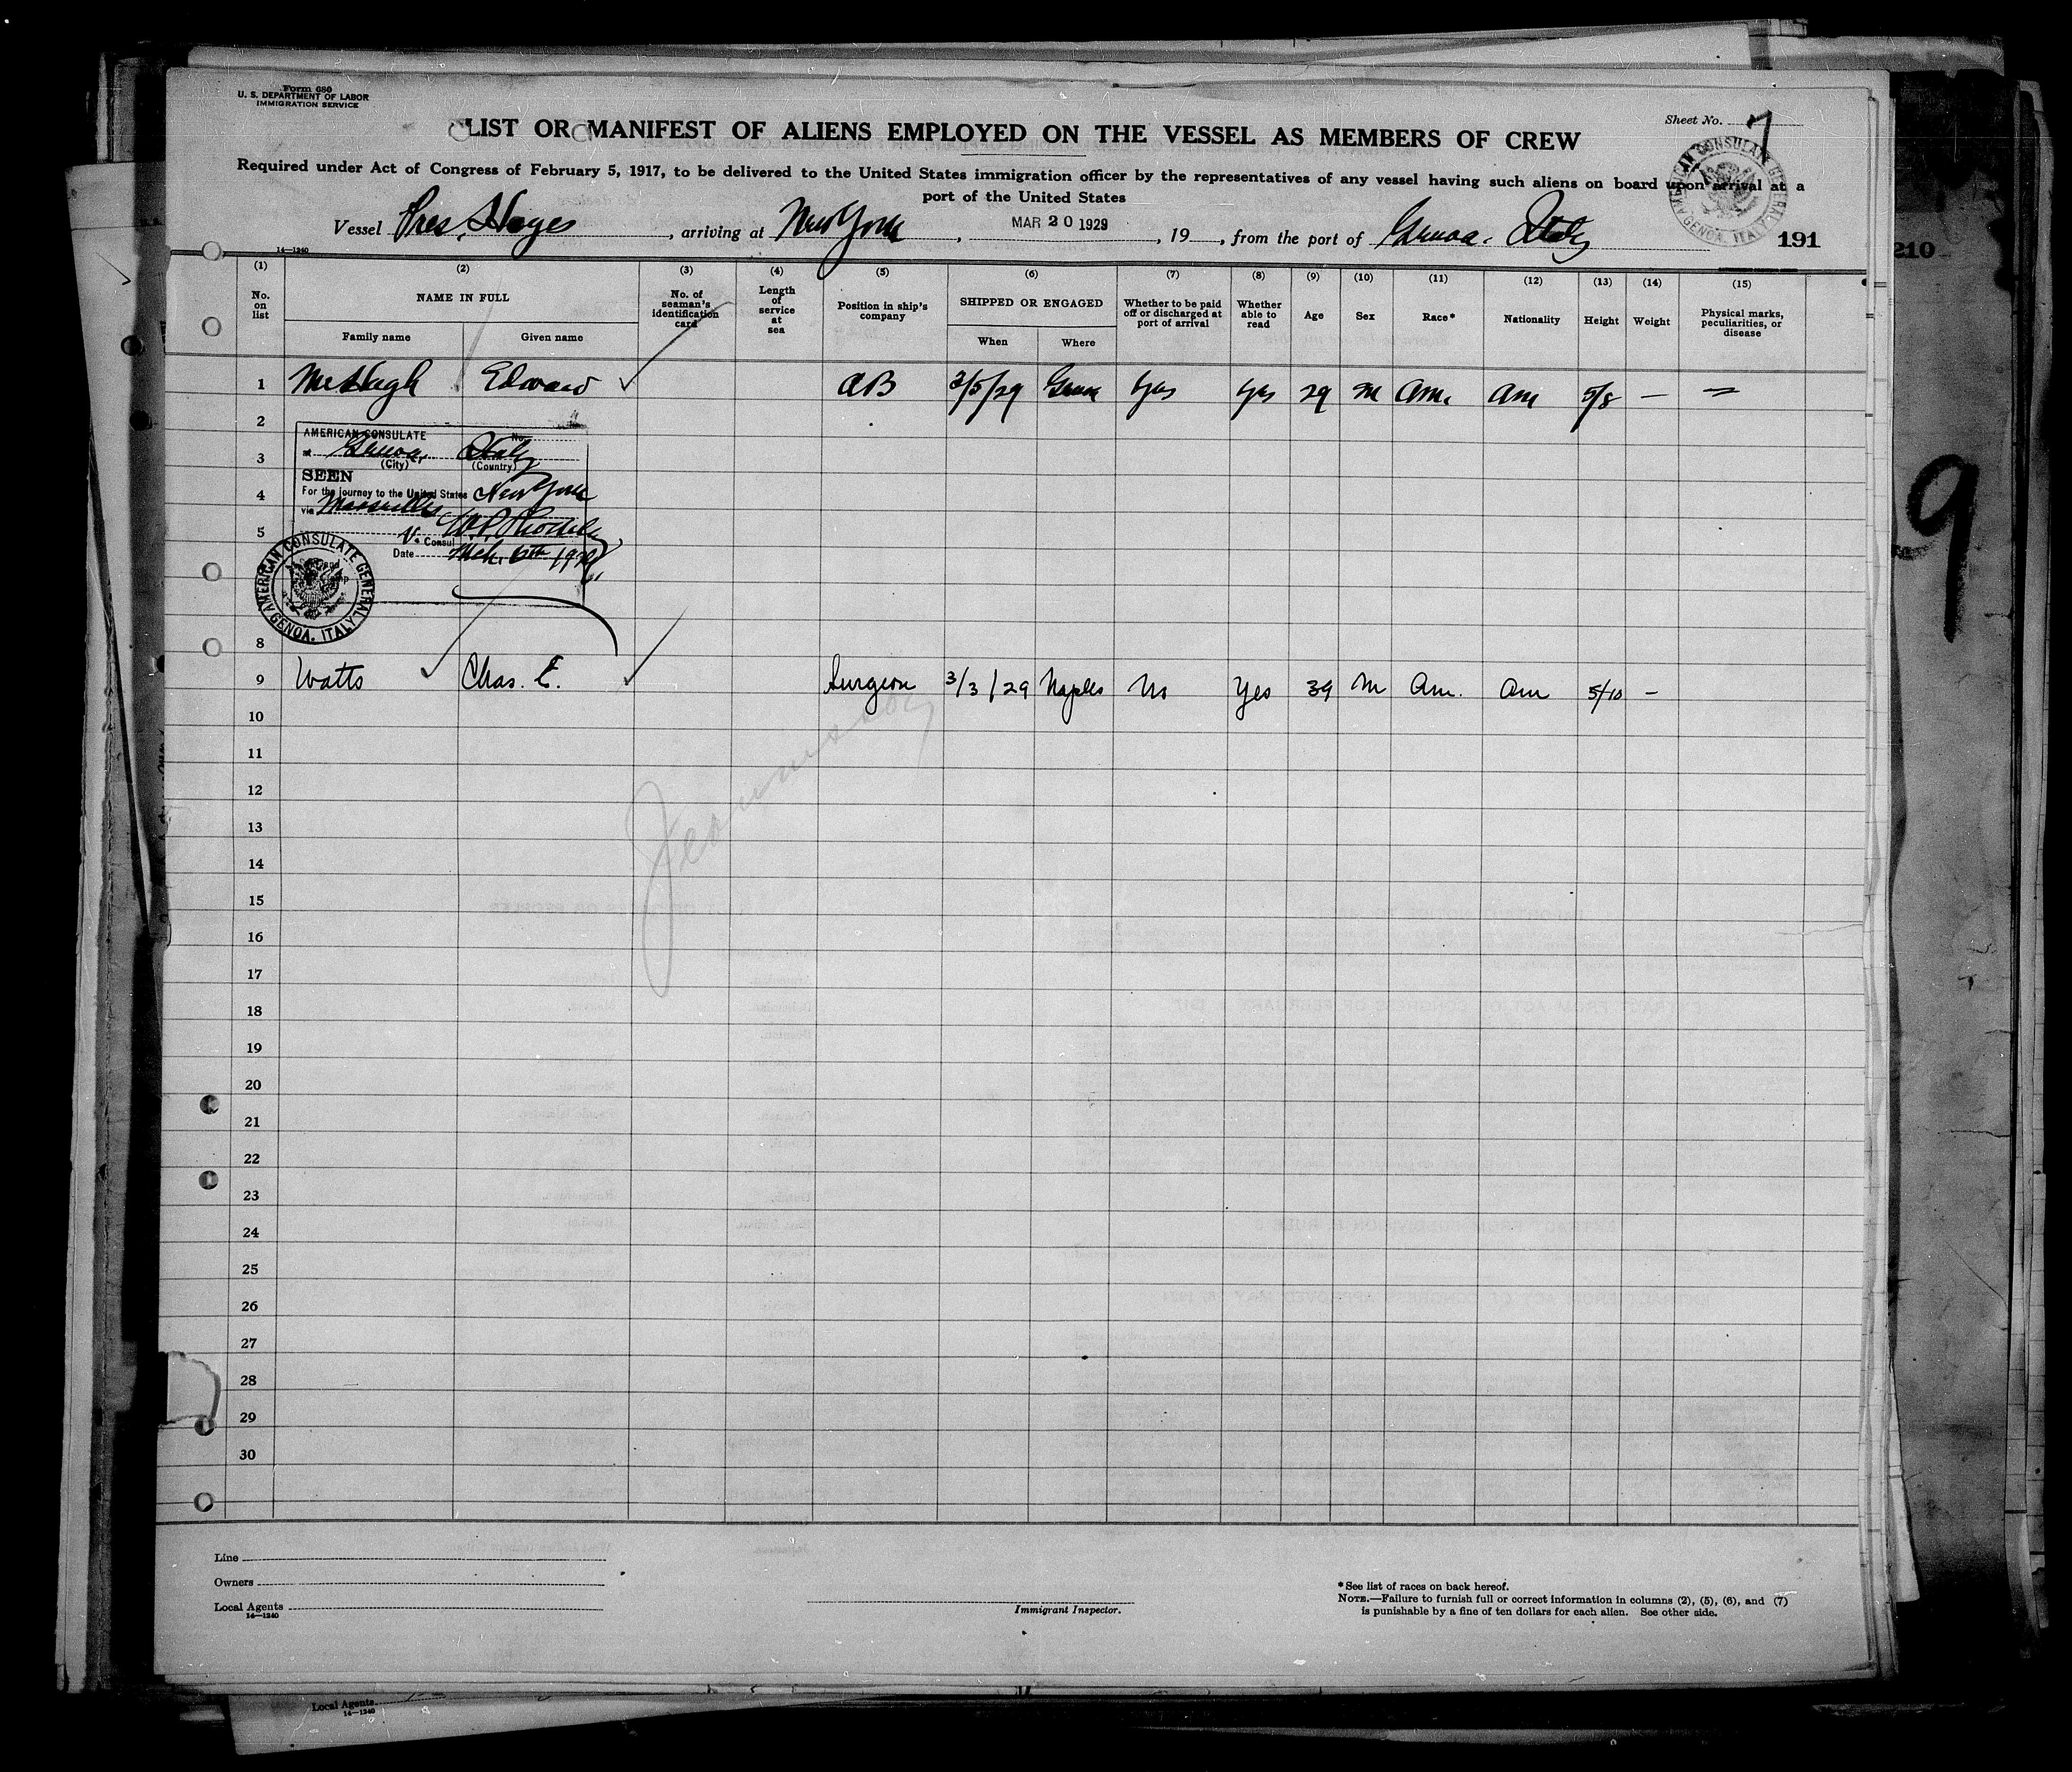 Form 680
U. S. DEPARTMENT OF LABOR
IMMIGRATION SERVICE
Sheet No. 7
LIST OR MANIFEST OF ALIENS EMPLOYED ON THE VESSEL AS MEMBERS OF CREW
Required under Act of Congress of February 5, 1917, to be delivered to the United States immigration officer by the representatives of any vessel having such aliens on board upon arrival at a
port of the United States
AMERICAN CONSULATE GENERAL GENOA, ITALY
Vessel Pres. Hayes, arriving at New York, MAR 20 1929, 19, from the port of Genoa. Italy
191
210
14—1240
(1) (2) (3) (4) (5) (6) (7) (8) (9) (10) (11) (12) (13) (14) (15)
No. on list
NAME IN FULL
Family name
Given name
No. of seaman's identification card
Length of service at sea
Position in ship's company
SHIPPED OR ENGAGED
When
Where
Whether to be paid off or discharged at port of arrival
Whether able to read
Age
Sex
Race*
Nationality
Height
Weight
Physical marks, peculiarities, or disease
1 McHugh Edward AB 3/5/29 Genoa Yes Yes 29 M Am. Am 5/8 — —
2
AMERICAN CONSULATE No.
3 at Genoa, Italy
(City) (Country)
SEEN
4 For the journey to the United States New York
via Marseilles
5 V. Consul
Date Mch. 6th 1929
AMERICAN CONSULATE GENERAL GENOA, ITALY
8
9 Watts Chas. E. Surgeon 3/3/29 Naples No Yes 39 M Am. Am 5/10 —
10
11
12
13
14
15
16
17
18
19
20
21
22
23
24
25
26
27
28
29
30
9
Line
Owners
Local Agents
14—1240
Immigrant Inspector.
*See list of races on back hereof.
NOTE.—Failure to furnish full or correct information in columns (2), (5), (6), and (7)
is punishable by a fine of ten dollars for each alien. See other side.
Local Agents
14—1240